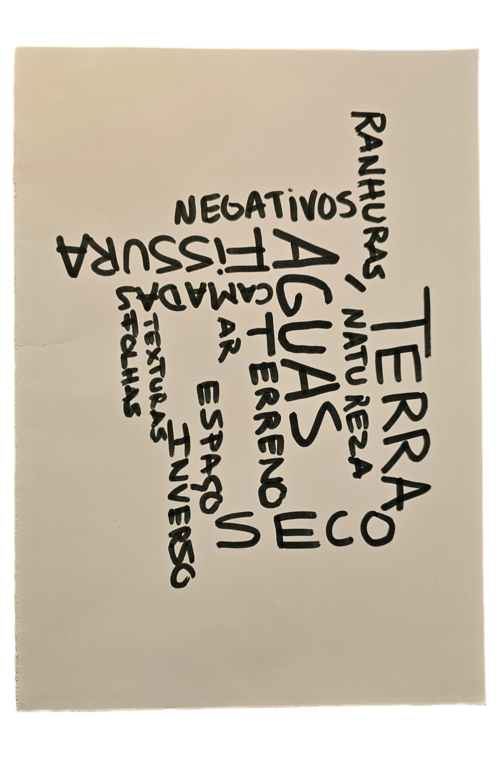 RANHURAS,
NEGATIVOS
FISSURA
AGUAS
CAMADAS
TERRA
NATUREZA
TERRENO
AR
ESPAÇO
TEXTURAS
FOLHAS
INVERSO
SECO